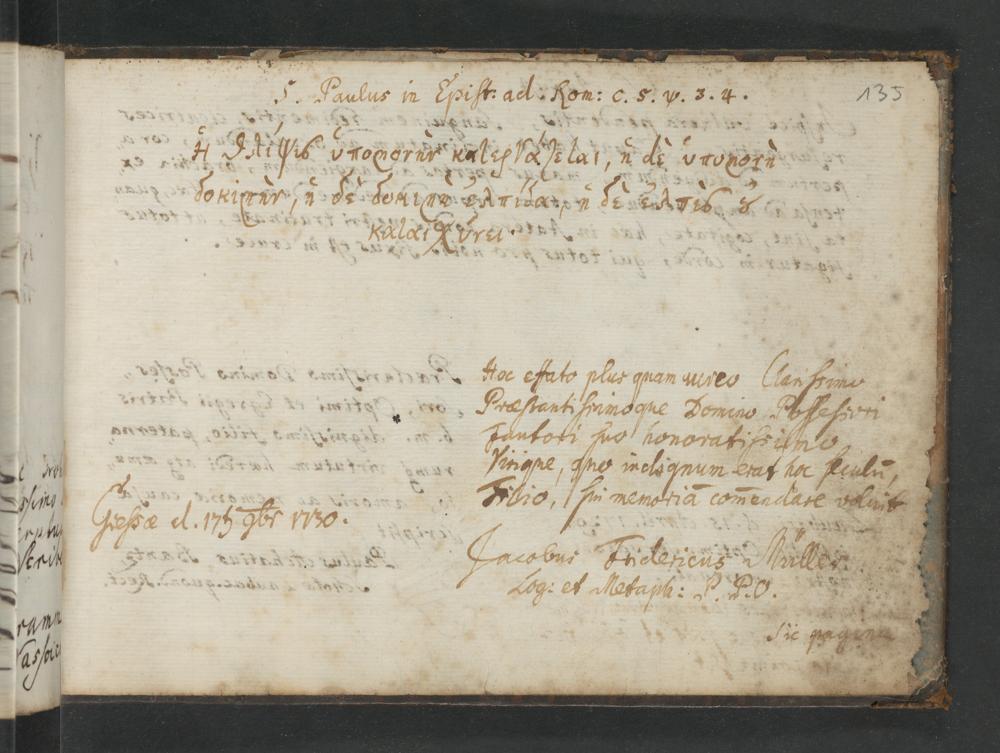 135
S. Paulus in Epist: ad. Rom: c. 5. v. 3. 4.
Ἡ θλίψις ὑπομονὴν κατεργάζεται, ἡ δὲ ὑπομονὴ
δοκιμὴν, ἡ δὲ δοκιμὴ ἐλπίδα, ἡ δὲ ἐλπὶς ȣ
καταισχύνει.
Hoc effato plus quam aureo Clarissimo
Præstantissimoque Domino Possessori
Fautori suo honoratissimo
Virique, quo indignum erat hoc seculũ,
Filio, sui memoriã com̃endare voluit
Giessæ d. 17 9br 1730.
Jacobus Fridericus Müller
Log: et Metaph: P. P. O.
sic pagina